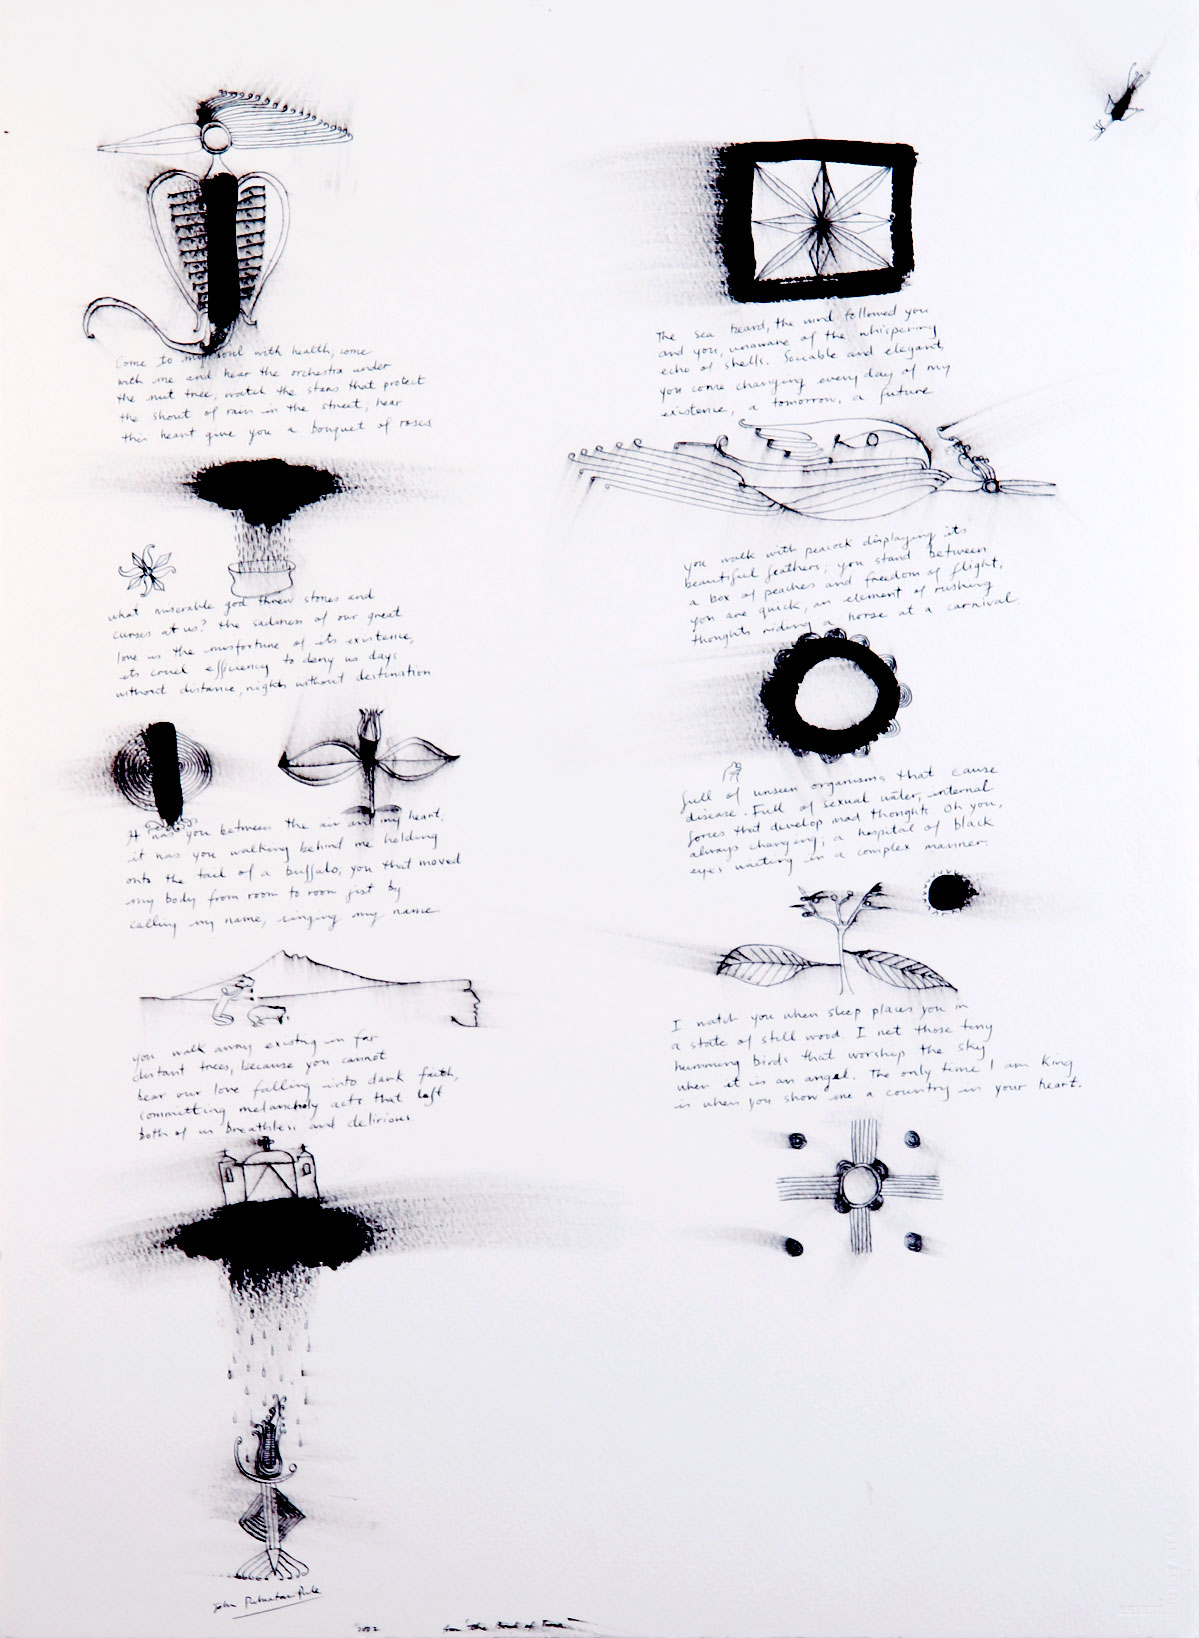 Come to my soul with health, come
with me and hear the orchestra under
the nut tree, watch the stars that protect
the shout of rain in the street; hear
this heart give you a bouquet of roses
what miserable god threw stones and
curses at us? the sadness of our great
love is the misfortune of its existence,
its cruel efficiency to deny us days
without distance, nights without destination
It was you between the air and my heart,
it was you walking behind me holding
onto the tail of a buffalo; you that moved
my body from room to room just by
calling my name, singing my name
you walk away existing in far
distant trees, because you cannot
bear our love falling into dark faith,
committing melancholy acts that left
both of us breathless and delirious
John Puhiatau Pule
2002
The sea heard, the wind followed you
and you, unaware of the whispering
echo of shells. Sociable and elegant,
you come changing every day of my
existence, a tomorrow, a future
you walk with peacock displaying its
beautiful feathers; you stand between
a box of peaches and freedom of flight,
you are quick, an element of rushing
thoughts riding a horse at a carnival.
full of unseen organisms that cause
disease. Full of sexual water, internal
forces that develop mad thoughts. Oh you,
always changing; a hospital of black
eyes waiting in a complex manner.
I watch you when sleep places you in
a state of still wood. I net those tiny
humming birds that worship the sky
when it is an angel. The only time I am King
is when you show me a country in your heart.